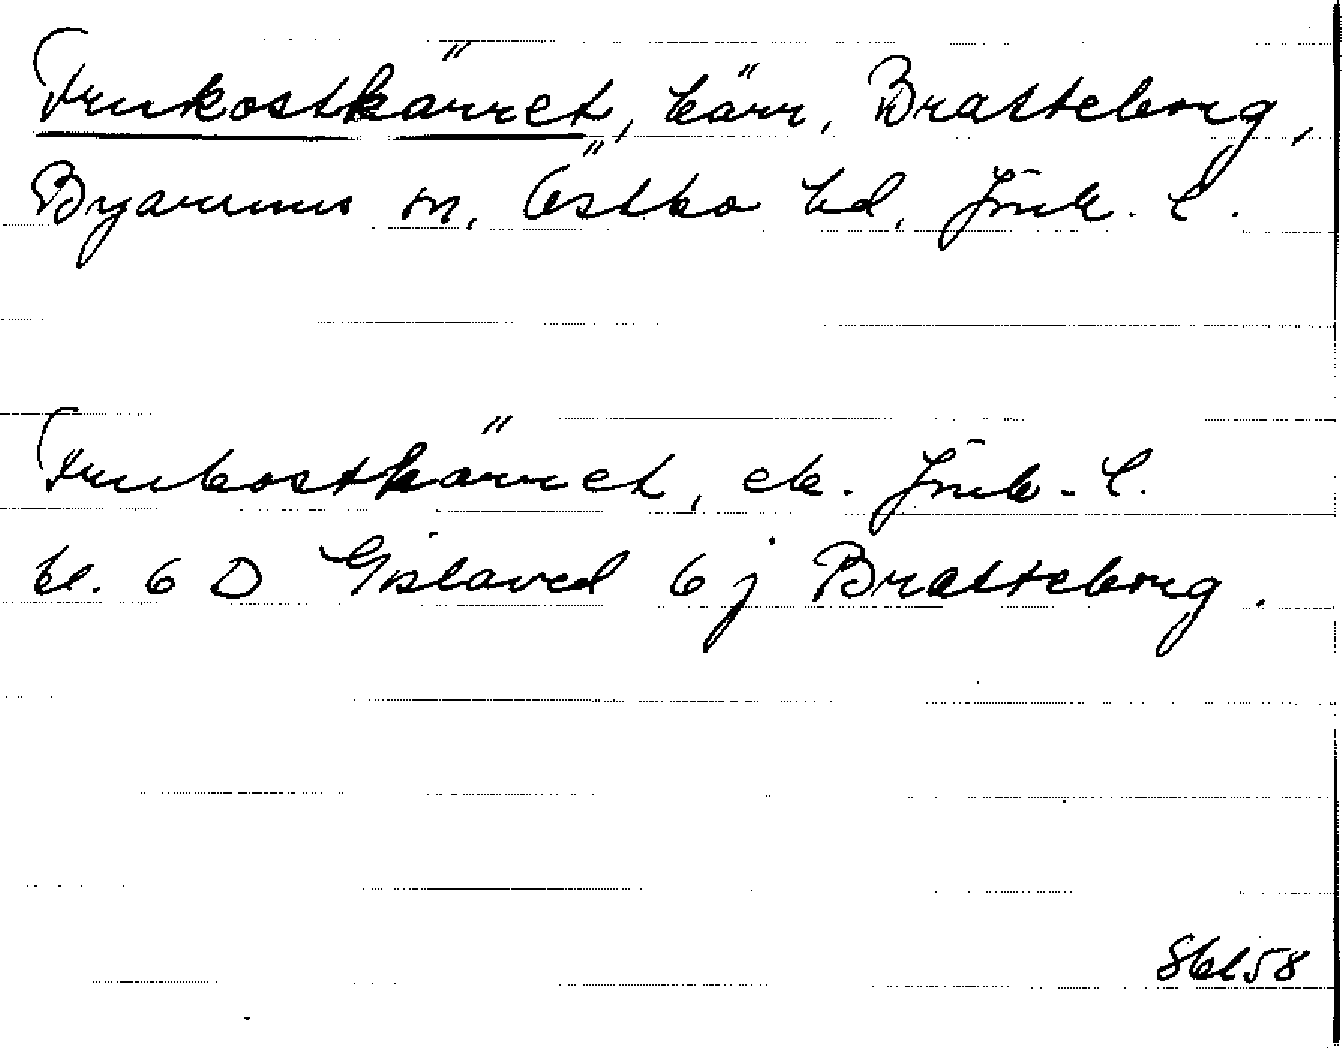 Frukostkärret, kärr, Bratteborg,
Byarums sn, Östbo hd, Jönk. l.
Frukostkärret, ek. Jönk. l.
bl. 6 D Gislaved 6 j Bratteborg.